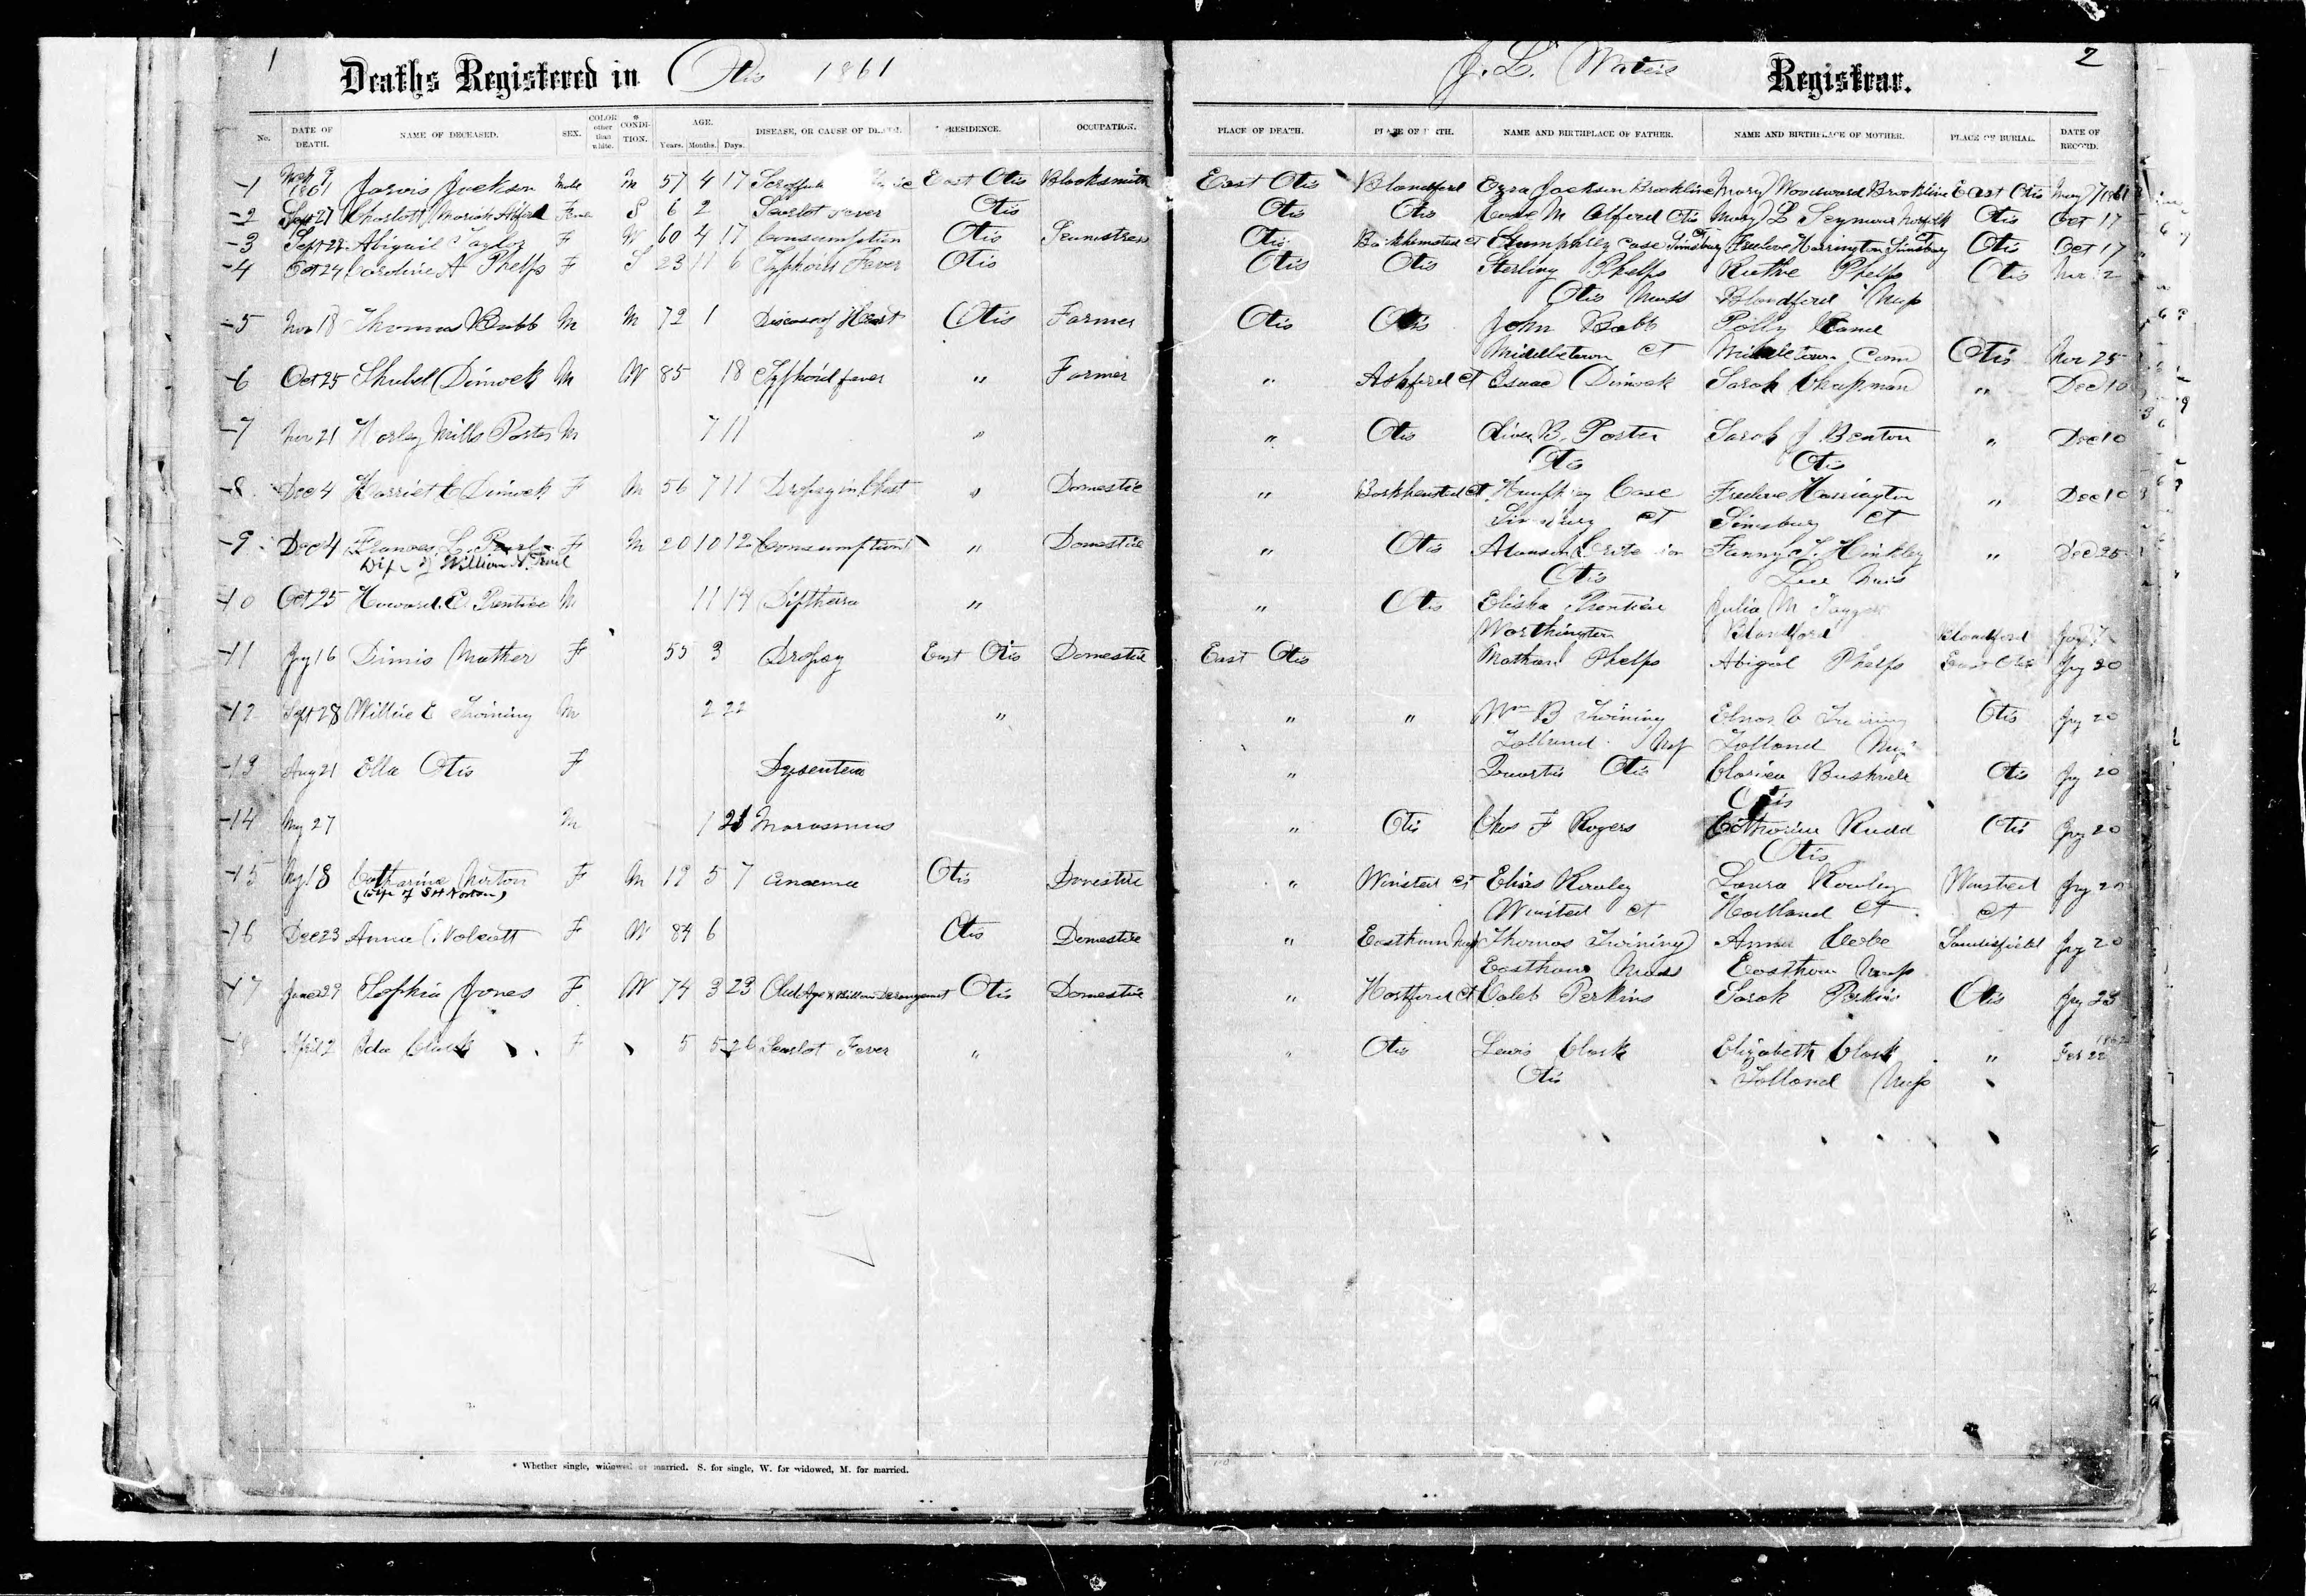 1
Deaths Registered in Otis 1861
J. L. Waters Registrar. 2
No. DATE OF DEATH. NAME OF DECEASED. SEX. COLOR other than white. * CONDITION. AGE. Years. Months. Days. DISEASE, OR CAUSE OF RESIDENCE. OCCUPATION. PLACE OF DEATH. NAME AND BIRTHPLACE OF FATHER. NAME AND BIRTHPLACE OF MOTHER. PLACE OF BURIAL. DATE OF RECORD.
1 1861 Jarvis Jackson Male M 57 4 17 East Otis Blacksmith East Otis Blandford Ezra Jackson Brookline Mary Woodward Brookline East Otis May 7 1861
2 Sept 27 Charlott Mariah Alford S 6 2 Scarlot Fever Otis Otis Otis M Alford Otis Mary L Seymour Norfolk Otis Oct 17
3 Sept 22 Abigail Taylor F W 60 4 17 Consumption Otis Seamstress Otis Barkhamsted ct Humphrey Case Simsbury ct Freelove Harrington Simsbury ct Otis Oct 17
4 Oct 24 Caroline A Phelps F S 23 11 6 Typhoid Fever Otis Otis Otis Sterling Phelps Ruthe Phelps Otis Nov 2
Otis Mass Blandford Mass
5 Nov 18 Thomas Babb M M 72 1 Disease of Heart Otis Farmer Otis Otis John Babb Polly
Middletown ct Middletown Conn Otis Nov 25
6 Oct 25 Shubel Dimock M W 85 18 Typhoid fever " Farmer " Ashford ct Isaac Dimock Sarah Chapman " Dec 10
7 Nov 21 Harley Mills Porter M 7 11 " " Otis Oliver B. Porter Sarah J Benton " Dec 10
Otis Otis
8 Dec 4 Harriet C Dimock F M 56 7 11 Dropsy in Chest " Domestic " Barkhamsted ct Humphrey Case Freelove Harrington " Dec 10
Simsbury ct Simsbury ct
9 Dec 4 Frances L. F M 20 10 12 Consumption " Domestic " Otis Fanny T. Hinkley " Dec 25
Wife of William N.
Otis Lee Mass
10 Oct 25 Howard E Prentice M 11 14 Diftheria " " Otis Elisha Prentice Julia M
Worthington Blandford Blandford Jay 7
11 Jay 16 Dimis Mather F 55 3 Dropsy East Otis Domestic East Otis Nathan Phelps Abigal Phelps East Otis Jay 20
12 Sept 28 Willie E Twining M 2 22 " " " Wm B Twining Elnor C Twining Otis Jay 20
Tolland Mass Tolland Mass
13 Aug 21 Ella Otis F Dysenteria " Otis Clarisa Bushnell Otis Jay 20
Otis
14 27 M 1 Marasmus " Otis Chas F Rogers Catharine Rudd Otis Jay 20
Otis
15 18 Catharine Norton F M 19 5 7 Anaemia Otis Domestic " Winsted ct Elias Rowley Laura Rowley Winsted Jay 20
(wife of S H Norton)
Winsted ct Hartland ct ct
16 Dec 23 Anna Wolcott F W 84 6 Otis Domestic " Eastham Mass Thomas Twining Anna Cobe Sandisfield Jay 20
Eastham Mass Eastham Mass
17 June 29 Sophia Jones F W 74 3 23 Old Age & Derangement Otis Domestic " Hartford ct Caleb Perkins Sarah Perkins Otis Jay 23
April 2 Ida Clark F 5 5 26 Scarlot Fever " " Otis Lewis Clark Elizabeth Clark " 1862 Feb 22
Otis Tolland Mass
* Whether single, widowed or married. S. for single, W. for widowed, M. for married.